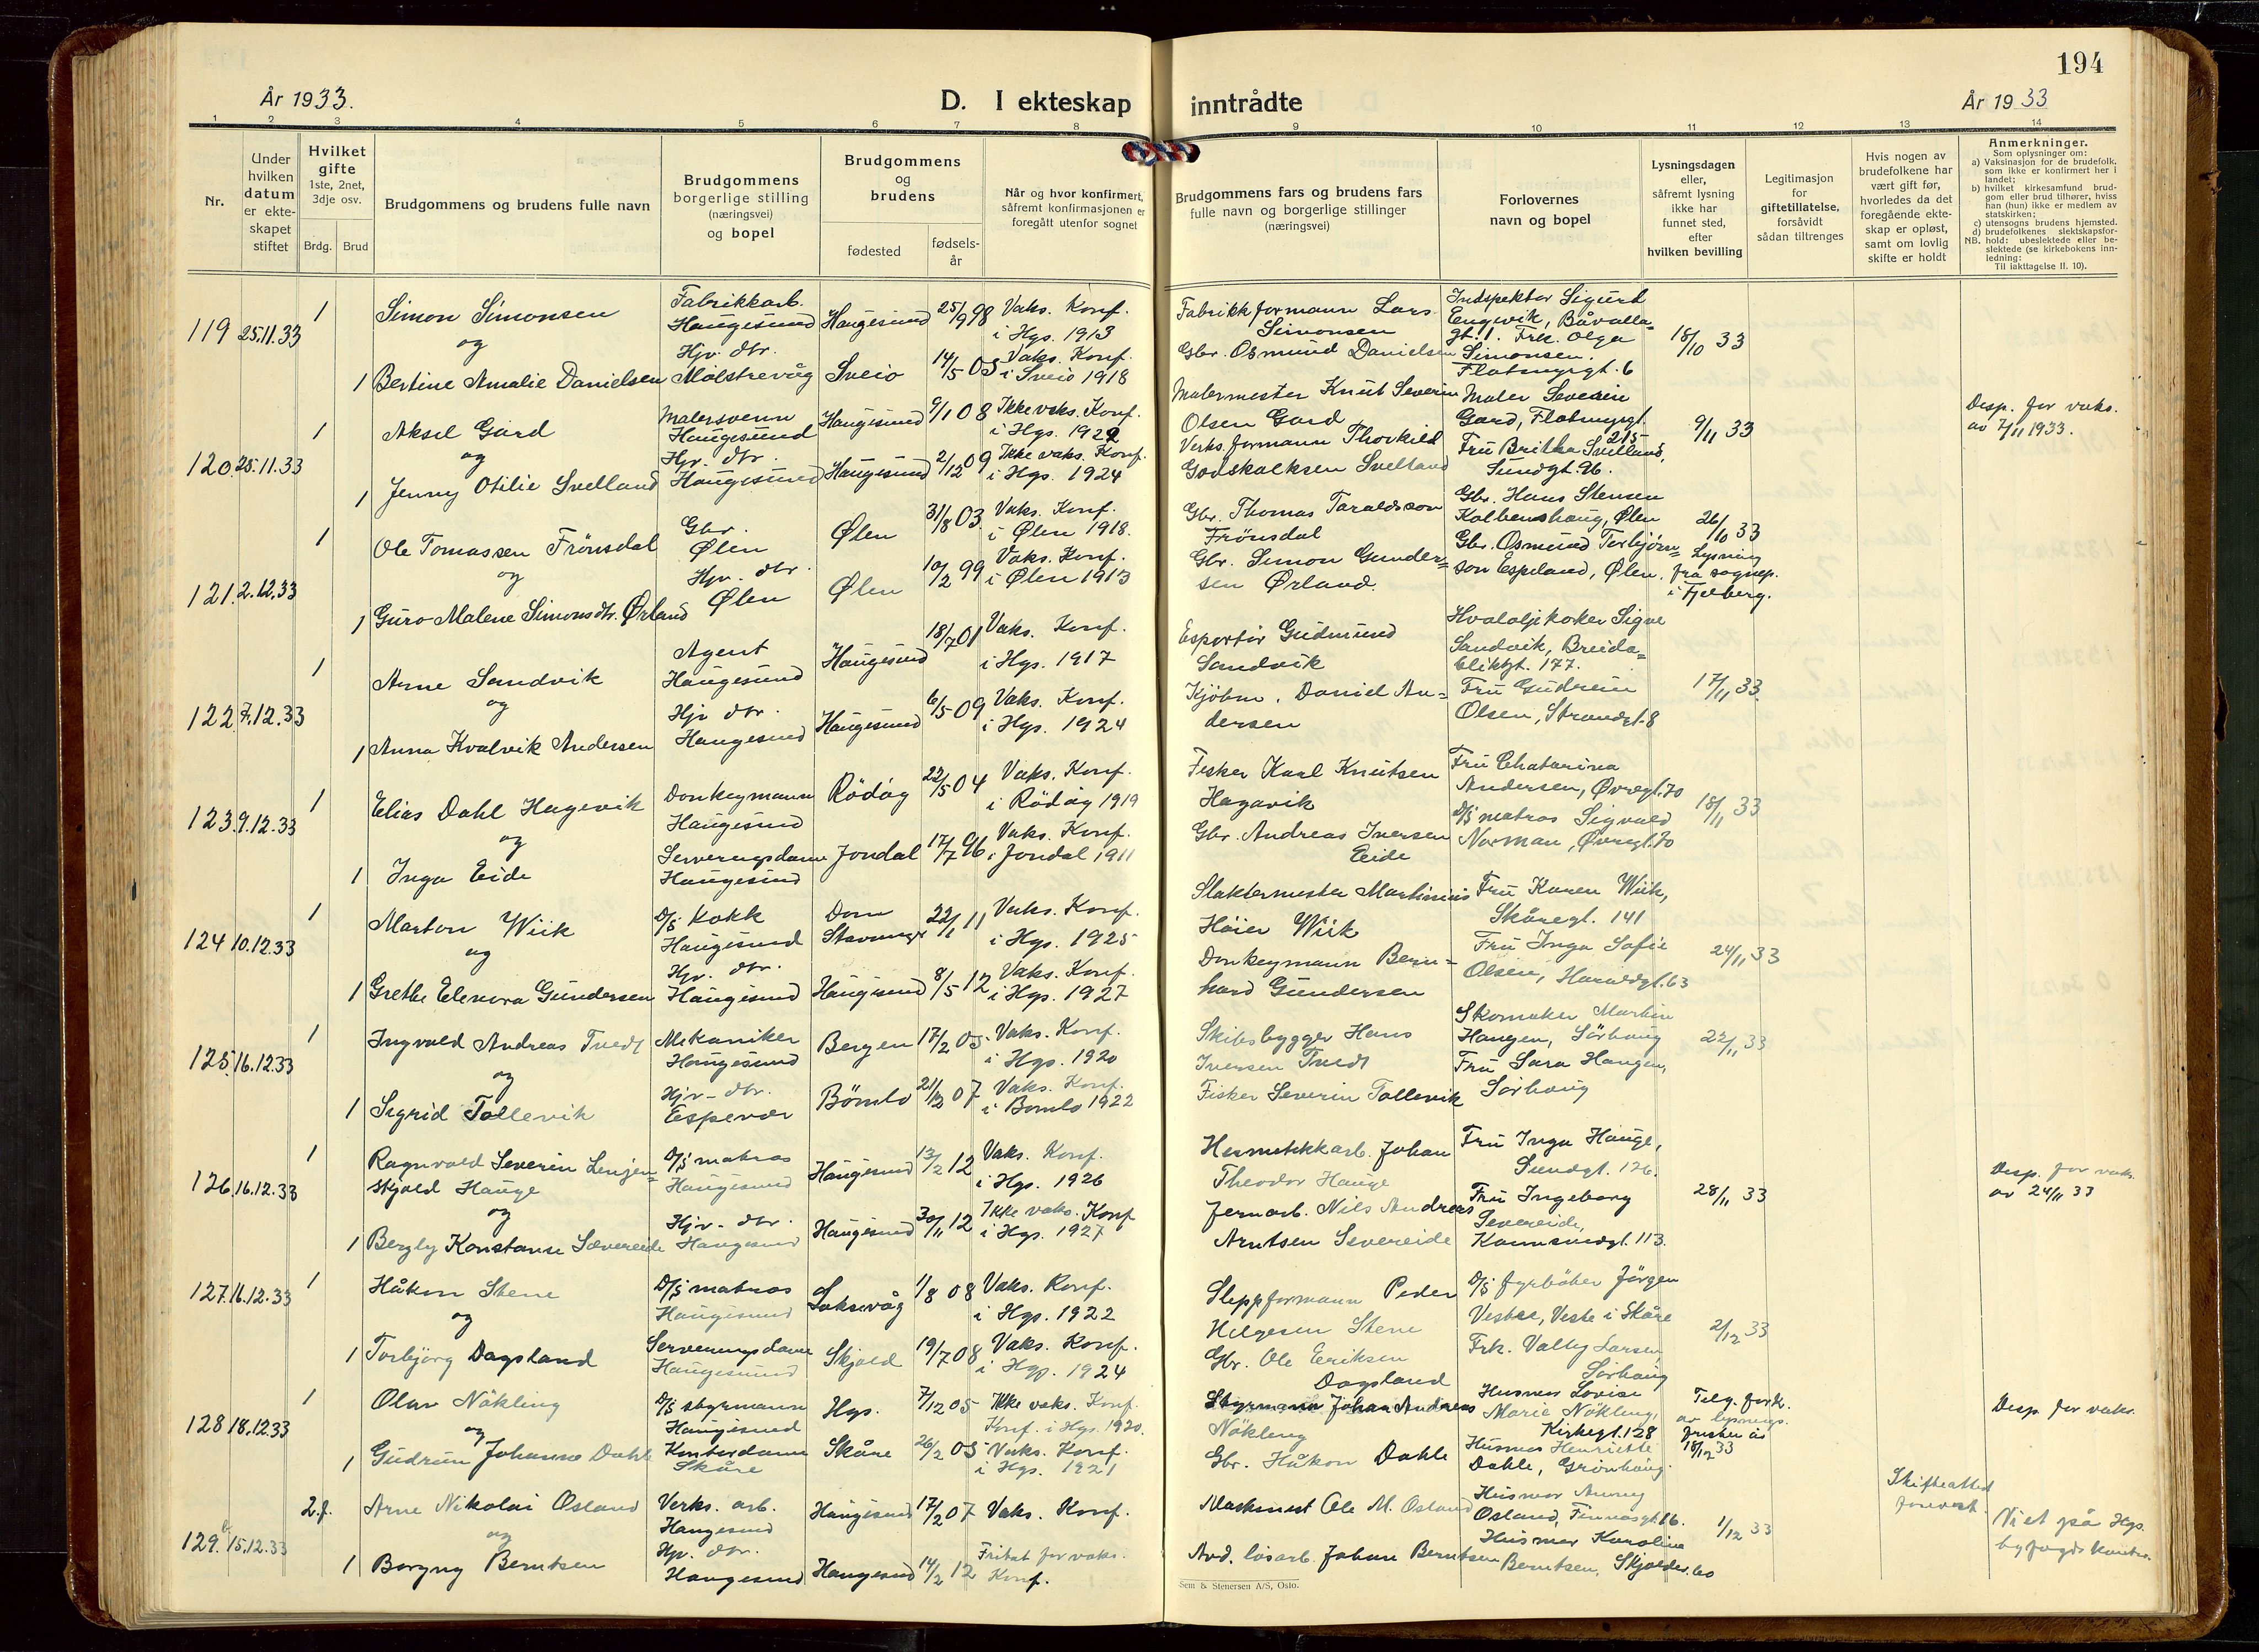 194
År 1933.
D. I ekteskap inntrådte
År 1933
1 2 3 4 5 6 7 8 9 10 11 12 13 14
Nr.
Under hvilken datum er ekteskapet stiftet
Hvilket gifte 1ste, 2net, 3dje osv.
Brdg. Brud
Brudgommens og brudens fulle navn
Brudgommens borgerlige stilling (næringsvei) og bopel
Brudgommens og brudens
fødested
fødselsår
Når og hvor konfirmert, såfremt konfirmasjonen er foregått utenfor sognet
Brudgommens fars og brudens fars fulle navn og borgerlige stillinger (næringsvei)
Forlovernes navn og bopel
Lysningsdagen eller, såfremt lysning ikke har funnet sted, efter hvilken bevilling
Legitimasjon for giftetillatelse, forsåvidt sådan tiltrenges
Hvis nogen av brudefolkene har vært gift før, hvorledes da det foregående ekteskap er opløst, samt om lovlig skifte er holdt
Anmerkninger.
Som oplysninger om:
a) Vaksinasjon for de brudefolk, som ikke er konfirmert her i landet;
b) hvilket kirkesamfund brudgom eller brud tilhører, hviss han (hun) ikke er medlem av statskirken;
c) utensogns brudens hjemsted.
d) brudefolkenes slektskapsforhold: ubeslektede eller beslektede (se kirkebokens innledning:
NB.
Til iakttagelse II. 10).
119 25.11.33 1 Simon Simonsen Fabrikkarb. Haugesund Haugesund 25/9 98 Vaks. Konf. i Hgs. 1913 Fabrikkformann Lars Simonsen Indspektør Sigurd Engevik, gt. 1. Frk. Olga Simonsen. Flotmyrgt. 6 18/10 33
og
1 Bertine Amalie Danielsen Hjv. dtr. Molstrevåg Sveio 14/5 05 Vaks. Konf. i Sveio 1918 Gbr. Osmund Danielsen
120. 25.11.33 1 Aksel Gard Malersvenn Haugesund Haugesund 9/1 08 Ikke vaks. Konf. i Hgs. 1922 Malermester Knut Severin Olsen Gard Maler Severin Gard, Flotmyrgt. 215 9/11 33 Desp. for vaks. av 7/11 1933.
og
1 Jenny Otilie Svelland Hjv. dtr. Haugesund Haugesund 2/12 09 Ikke vaks. Konf. i Hgs. 1924 Verksformann Thorkild Godskalksen Svelland Fru Britha Svelland, Sundgt. 96.
121. 2.12.33 1 Ole Tomassen Frönsdal Gbr. Ølen Ølen 31/8 03 Vaks. Konf. i Ølen 1918. Gbr. Thomas Taraldsson Frönsdal Gbr. Hans Stensen Kolbenshaug, Ølen 26/10 33 Lysning fra sognep. i Fjelberg.
og
1 Guro Malene Simonsdtr. Ørland Hjv. dtr. Ølen Ølen 10/2 99 Vaks. Konf. i Ølen 1913 Gbr. Simon Gundersen Ørland. Gbr. Osmund Torbjørnson Espeland, Ølen.
122 7.12.33 1 Arne Sandvik Agent Haugesund Haugesund 18/7 01 Vaks. Konf. i Hgs. 1917 Exportör Gudmund Sandvik Hvaloljekoker Signe Sandvik, Breidablikkgt. 177. 17/11 33.
og
1 Anna Kvalvik Andersen Hjv dtr. Haugesund Haugesund 6/5 09 Vaks. Konf. i Hgs. 1924 Kjøbm. Daniel Andersen Fru Gudrun Olsen, Strandgt. 8
123. 9.12.33 1 Elias Dahl Hagevik Donkeymann Haugesund Rödöy 22/5 04 Vaks. Konf. i Rödöy 1919 Fisker Karl Knutsen Hagavik Fru Chatarina Andersen, Øvregt. 70 18/11 33
og
1 Inga Eide Serveringsdame Haugesund Jondal 17/7 96 Vaks. Konf. i Jondal 1911 Gbr. Andreas Iversen Eide D/S matros Sigvald Norman, Øvregt. 70
124 10.12.33 1 Marton Wiik D/S kokk Haugesund Dom Stavanger 22/1 11 Vaks. Konf. i Hgs. 1925 Slaktermester Martinius Høier Wiik Fru Karen Wiik, Skåregt. 141 24/11 33
og
1 Grethe Elenora Gundersen Hjv. dtr. Haugesund Haugesund 8/5 12 Vaks. Konf. i Hgs. 1927 Donkeymann Bernhard Gundersen Fru Inga Sofie Olsen, Haraldgt. 63
125. 16.12.33 1 Ingvald Andreas Tvedt Mekaniker Haugesund Bergen 17/2 05 Vaks. Konf. i Hgs. 1920 Skibsbygger Hans Iversen Tvedt Skomaker Martin Haugen, Sörhaug 22/11 33
og
1 Sigrid Tollevik Hjv. dtr. Espevær Bömlo 21/12 07 Vaks. Konf. i Bömlo 1922 Fisker Severin Tollevik Fru Sara Haugen, Sörhaug
126. 16.12.33 1 Ragnvald Severin Lenjenskjold Hauge D/S matros Haugesund Haugesund 13/2 12 Vaks. Konf. i Hgs. 1926 Hermetikkarb. Johan Theodor Hauge Fru Inga Hauge, Sundgt. 126. 28/11 33 Desp. for vaks. av 24/11 33
og
1 Bergly Konstanse Sævereide Hjv. dtr. Haugesund Haugesund 30/11 12 Ikke vaks. Konf i Hgs. 1927 Jernarb. Nils Andreas Arntsen Severeide Fru Ingeborg Severeide, Karmsundgt. 113.
127. 16.12.33 1 Håkon Stene D/S matros Haugesund Laksevåg 1/8 08 Vaks. Konf. i Hgs. 1922 Sleppformann Peder Helgesen Stene D/S fyrbøter Jörgen Vestre, Veste i Skåre 2/12 33
og
1 Torbjörg Dagsland Serveringsdame Haugesund Skjold 19/7 08 Vaks. Konf. i Hgs. 1924 Gbr. Ole Eriksen Dagsland Frk. Valley Larsen, Sörhaug
128 18.12.33 1 Olav Nökling D/S styrmann Haugesund Hgs. 7/12 05 Ikke vaks. Konf. Konf. i Hgs. 1920. Styrmann Johan Andreas Nökling Husmor Lovise Marie Nökling, Kirkegt. 128 Telg. fork. av lysnings- fristen av 18/12 33 Desp. for vaks.
og
1 Gudrun Johanne Dahle Kontordame Skåre Skåre 26/2 05 Vaks. Konf. i Hgs. 1921 Gbr. Håkon Dahle Husmor Henriette Dahle, Grönhaug.
129. 15.12.33 2.g. Arne Nikolai Osland Verks. arb. Haugesund Haugesund 17/2 07 Vaks. Konf. Maskinist Ole M. Osland Husmor Anny Osland, Finnåsgt. 16. 1/12 33 Skifteattest forevist. Viet på Hgs. byfogdkontor.
og
1 Borgny Berntsen Hjv. dtr. Haugesund Haugesund 14/2 12 Fritat for vaks. Konf. Avd. løsarb. Johan Berntsen Husmor Karoline Berntsen, Skjoldav. 60
Sem & Stenersen A/S, Oslo.